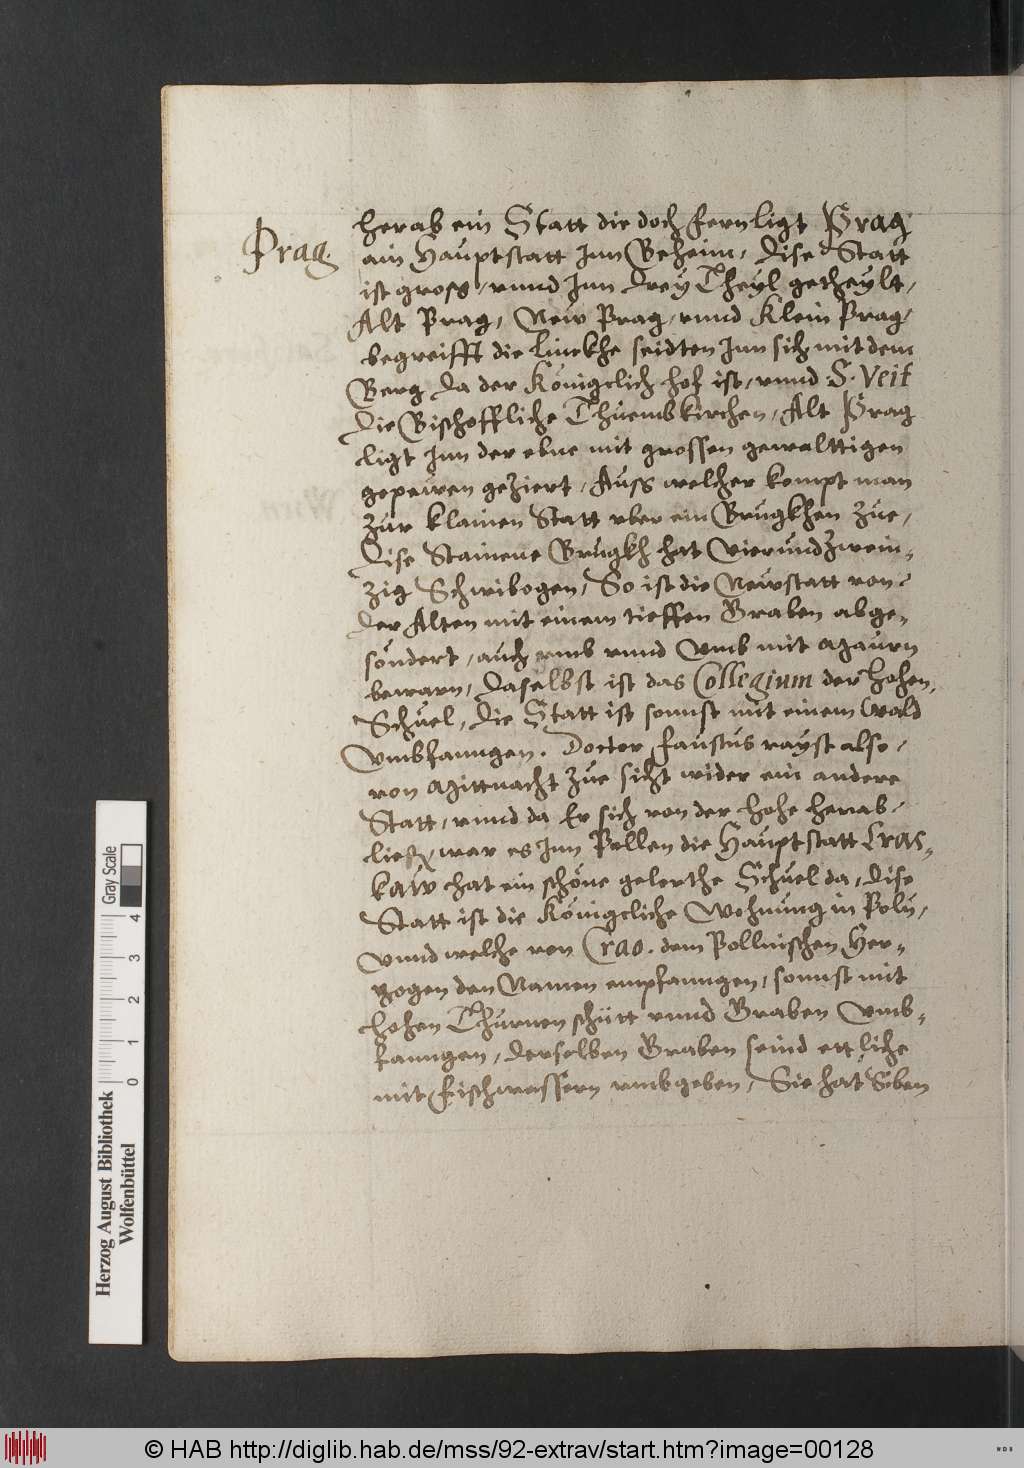 Prag.
herab ein Statt die doch fern ligt Prag
ain Hauptstatt Inn Beheim, dise Statt
ist gross, vnnd Inn drey Theyl getheylt,
Alt Prag, New Prag, vnnd Klein Prag,
begreifft die linckhe seidten Inn sich mit dem
Berg da der Königclich hof ist, vnnd S. Veit
die Bischoffliche Thuembkirchen, Alt Prag
ligt Inn der ebne mit grossen gewalttigen
gepewen geziert, Auss welcher kompt man
zur klainen Statt vber ein Brugkhen zue,
dise Stainene Brugkh hat Vierundzwein-
zig Schwibogen, So ist die Newstatt von
der Alten mit einem tieffen Graben abge-
söndert, auch vmb vnnd Vmb mit Maurn
bewarn, daselbst ist das Collegium der Hohen
Schuel, die Statt ist sonnst mit einem Wald
Vmbfanngen. Doctor Faustus rayst also,
von Mittnacht zue sicht wider ein andere
Statt, vnnd da Er sich von der hohe herab
liess, war es Inn Pollen die Hauptstatt Cras-
kaw hat ein schöne gelerthe Schuel da, dise
Statt ist die Königcliche Wohnung in Poln,
Vnnd welche von Crao. dem Pollnischen Her-
zogen den Namen empfanngen, sonnst mit
hohen Thurnen schütt vnnd Graben Vmb-
fanngen, derselben Graben seind ettliche
mit fischwassern vmbgeben, Sie hat Siben
Herzog August Bibliothek
Wolfenbüttel
Gray Scale
0 1 2 3 4
© HAB http://diglib.hab.de/mss/92-extrav/start.htm?image=00128